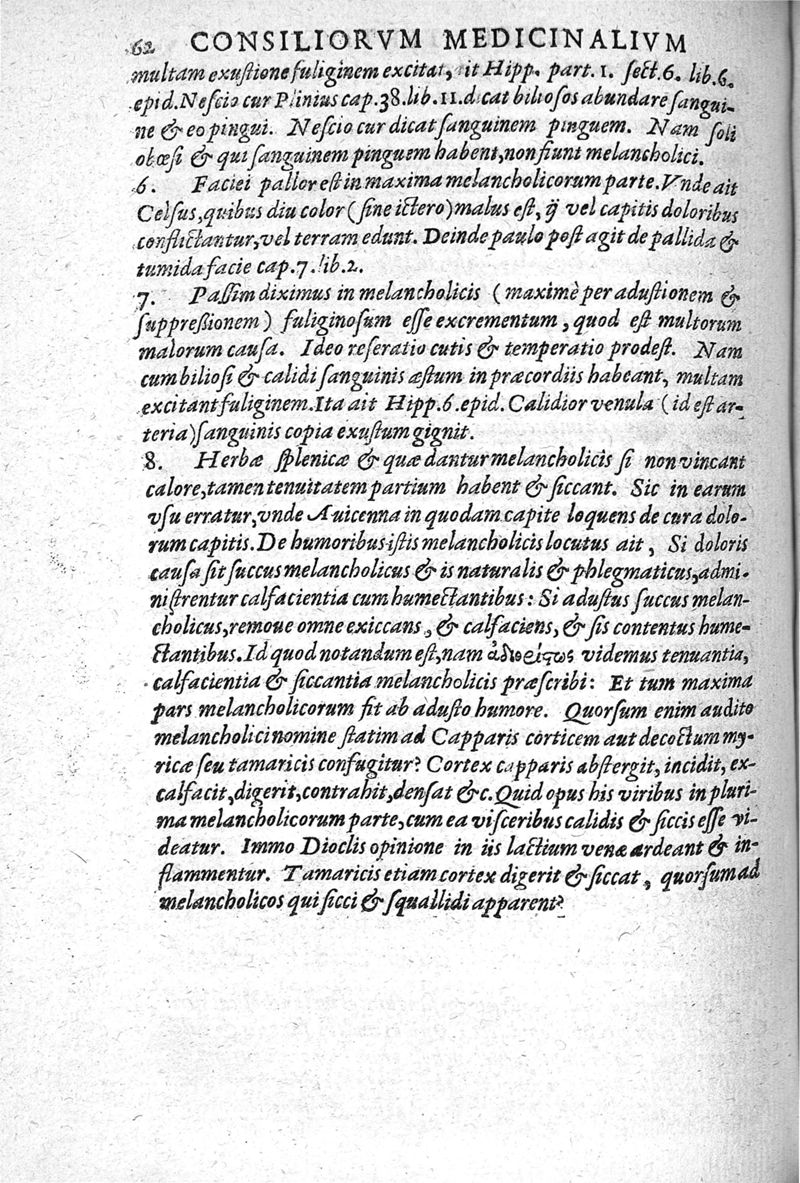 62 CONSILIORVM MEDICINALIVM
multam exustione fuliginem excitat, ait Hipp. part. 1. sect. 6. lib. 6.
epid. Nescio cur Plinius cap. 38. lib. 11. dicat biliosos abundare sangui-
ne & eo pingui. Nescio cur dicat sanguinem pinguem. Nam soli
obœsi & qui sanguinem pinguem habent, non fiunt melancholici.
6. Faciei pallor est in maxima melancholicorum parte. Vnde ait
Celsus, quibus diu color (sine ictero) malus est, ij vel capitis doloribus
conflictantur, vel terram edunt. Deinde paulo post agit de pallida &
tumida facie cap. 7. lib. 2.
7. Passim diximus in melancholicis (maximè per adustionem &
suppressionem) fuliginosum esse excrementum, quod est multorum
malorum causa. Ideo reseratio cutis & temperatio prodest. Nam
cum biliosi & calidi sanguinis æstum in præcordiis habeant, multam
excitant fuliginem. Ita ait Hipp. 6. epid. Calidior venula (id est ar-
teria) sanguinis copia exustum gignit.
8. Herbæ splenicæ & quæ dantur melancholicis si non vincant
calore, tamen tenuitatem partium habent & siccant. Sic in earum
vsu erratur, vnde Auicenna in quodam capite loquens de cura dolo-
rum capitis. De humoribus istis melancholicis locutus ait, Si doloris
causa sit succus melancholicus & is naturalis & phlegmaticus, admi-
nistrentur calfacientia cum humectantibus: Si adustus succus melan-
cholicus, remoue omne exiccans, & calfaciens, & sis contentus hume-
ctantibus. Id quod notandum est, nam ἀδιορίςως videmus tenuantia,
calfacientia & siccantia melancholicis præscribi: Et tum maxima
pars melancholicorum fit ab adusto humore. Quorsum enim audito
melancholici nomine statim ad Capparis corticem aut decoctum my-
ricæ seu tamaricis confugitur? Cortex capparis abstergit, incidit, ex-
calfacit, digerit, contrahit, densat &c. Quid opus his viribus in pluri-
ma melancholicorum parte, cum ea visceribus calidis & siccis esse vi-
deatur. Immo Dioclis opinione in iis lactium venæ ardeant & in-
flammentur. Tamaricis etiam cortex digerit & siccat, quorsum ad
melancholicos qui sicci & squallidi apparent?